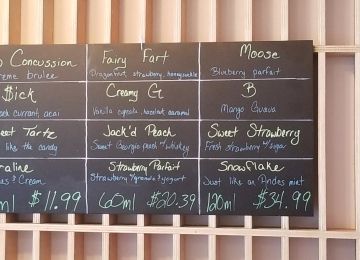 Concussion
creme brulee
Fairy Fart
Dragonfruit, strawberry, honeysuckle
Moose
Blueberry parfait
$ick
currant, acai
Creamy G
Vanilla cupcake, hazelnut caramel
B
Mango Guava
Tartz
like the candy
Jack'd Peach
Sweet Georgia peach w/whiskey
Sweet Strawberry
Fresh strawberry w/sugar
& Cream
Strawberry Parfait
Strawberry & granola & yogurt
Snowflake
Just like an Andes mint
ml $11.99
60ml $20.39
120ml $34.99